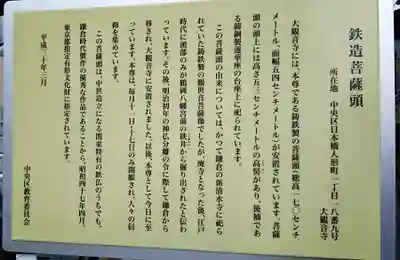 鉄造菩薩頭
所在地 中央区日本橋人形町一丁目一八番九号
大観音寺
大観音寺には、本尊である鋳鉄製の菩薩頭(総高一七〇センチ
メートル、面幅五四センチメートル)が安置されています。菩薩
頭の頭上には高さ五三センチメートルの高髻があり、後補であ
る鋳銅製蓮華座の台座上に祀られています。
この菩薩頭の由来については、かつて鎌倉の新清水寺に祀ら
れていた鋳鉄製の観世音菩薩像でしたが、廃寺となった後、江戸
時代に頭部のみが鶴岡八幡宮前の鉄井から掘り出されたと伝わ
っています。その後、明治初年の神仏分離の令に際して鎌倉から
移され、大観音寺に安置されました。以後、本尊として今日に至
っています。本尊は、毎月十一日・十七日のみ開帳され、人々の信
仰を集めています。
この菩薩頭は、中世造立になる関東特有の鉄仏のうちでも、
鎌倉時代製作の優秀な作品であることから、昭和四十七年四月、
東京都指定有形文化財に指定されています。
平成二十年三月
中央区教育委員会